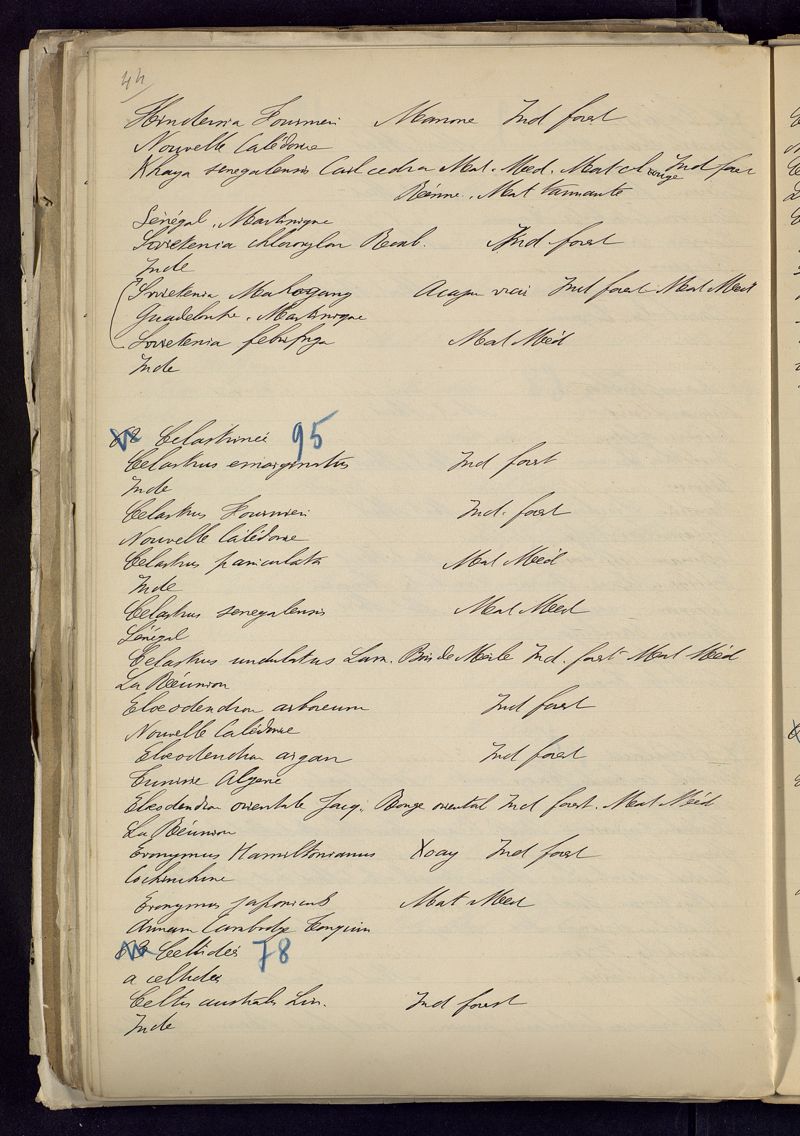 44
Flindersia Fournieri Manoné Ind forest
Nouvelle Calédonie
Khaya senegalensis Cail cedra Mat. Med. Mat col rouge Ind fores
Résine. Mat tannante
Sénégal. Martinique
Swietenia chloroxylon Roxb. Ind forest
Inde
Swietenia Mahogany Acajou vrai Ind forest Mat Med
Guadeloupe. Martinique
Swietenia febrifuga Mat Méd
Inde
Celastrinées 95
Celastrus emarginatus Ind forest
Inde
Celastrus Fournieri Ind. forest
Nouvelle Calédonie
Celastrus paniculata Mat Méd
Inde
Celastrus senegalensis Mat Med
Sénégal
Celastrus undulatus Lam. Bois de Merle Ind. forest Mat Méd
La Réunion
Eleodendron arboreum Ind forest
Nouvelle Calédonie
Eleodendron argan Ind forest
Tunisie Algerie
Eleodendron orientale Jacq. Rouge oriental Ind forest. Mat Méd
La Réunion
Evonymus Hamiltonianus Xoay Ind forest
Cochinchine
Evonymus japonicus Mat Med
Annam Cambodge Tonquin
Celtidées 78
a celtidées
Celtis australis Lin. Ind forest
Inde